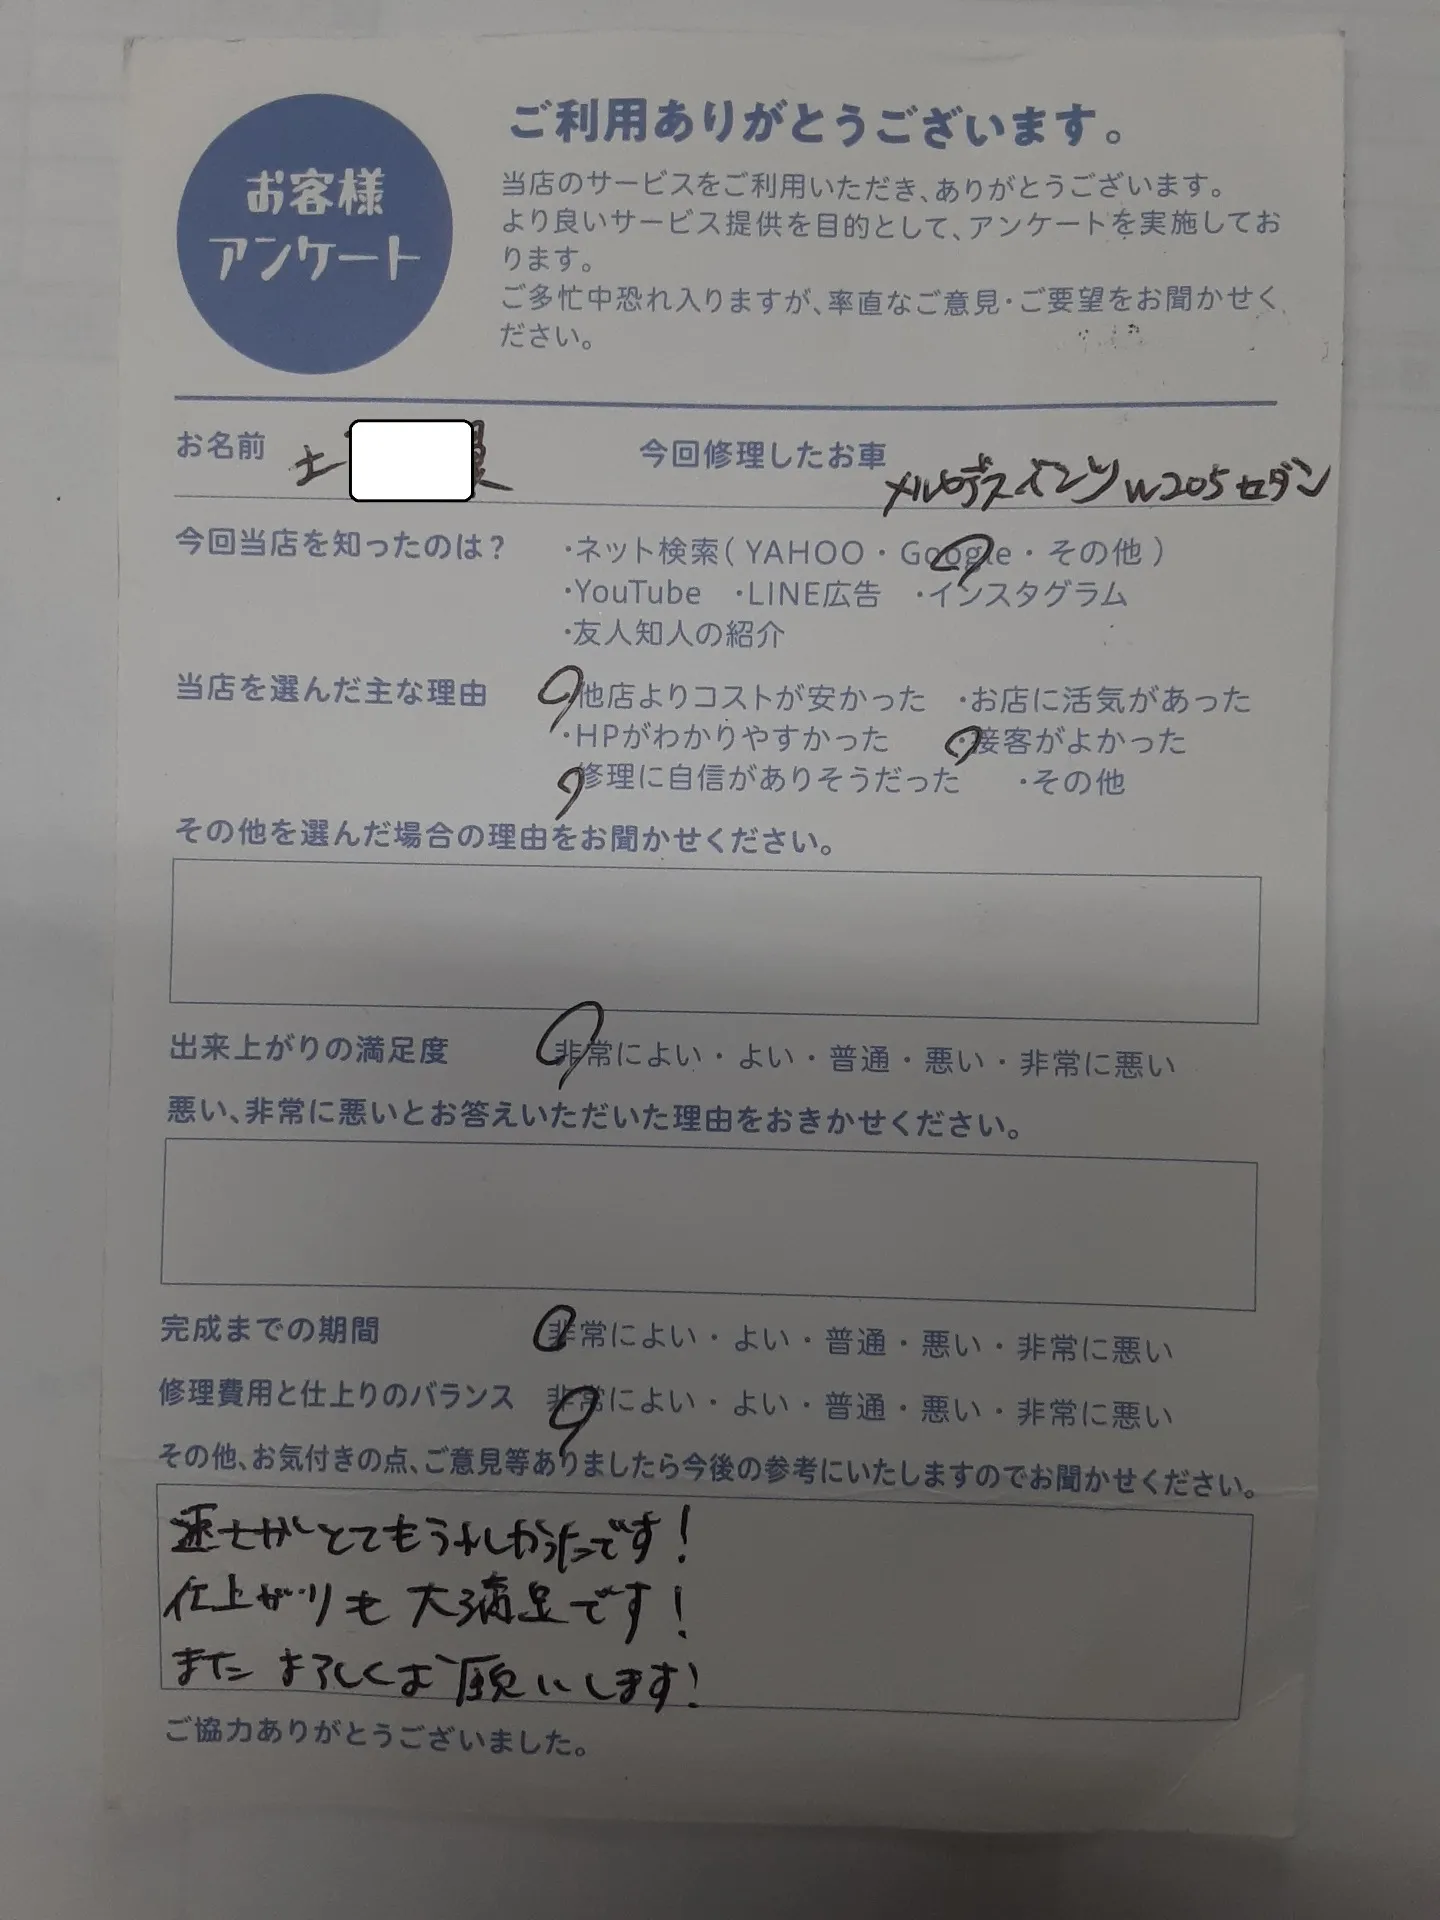 お客様
アンケート
ご利用ありがとうございます。
当店のサービスをご利用いただき、ありがとうございます。
より良いサービス提供を目的として、アンケートを実施してお
ります。
ご多忙中恐れ入りますが、率直なご意見・ご要望をお聞かせく
ださい。
お名前 土
今回修理したお車 メルセデスベンツ W205 セダン
今回当店を知ったのは? ・ネット検索( YAHOO ・ Google ・ その他 )
・YouTube ・LINE広告 ・インスタグラム
・友人知人の紹介
当店を選んだ主な理由 ・他店よりコストが安かった ・お店に活気があった
・HPがわかりやすかった ・接客がよかった
・修理に自信がありそうだった ・その他
その他を選んだ場合の理由をお聞かせください。
出来上がりの満足度 非常によい・よい・普通・悪い・非常に悪い
悪い、非常に悪いとお答えいただいた理由をおきかせください。
完成までの期間 非常によい・よい・普通・悪い・非常に悪い
修理費用と仕上りのバランス 非常によい・よい・普通・悪い・非常に悪い
その他、お気付きの点、ご意見等ありましたら今後の参考にいたしますのでお聞かせください。
速さがとてもうれしかったです!
仕上がりも大満足です!
また よろしくお願いします!
ご協力ありがとうございました。